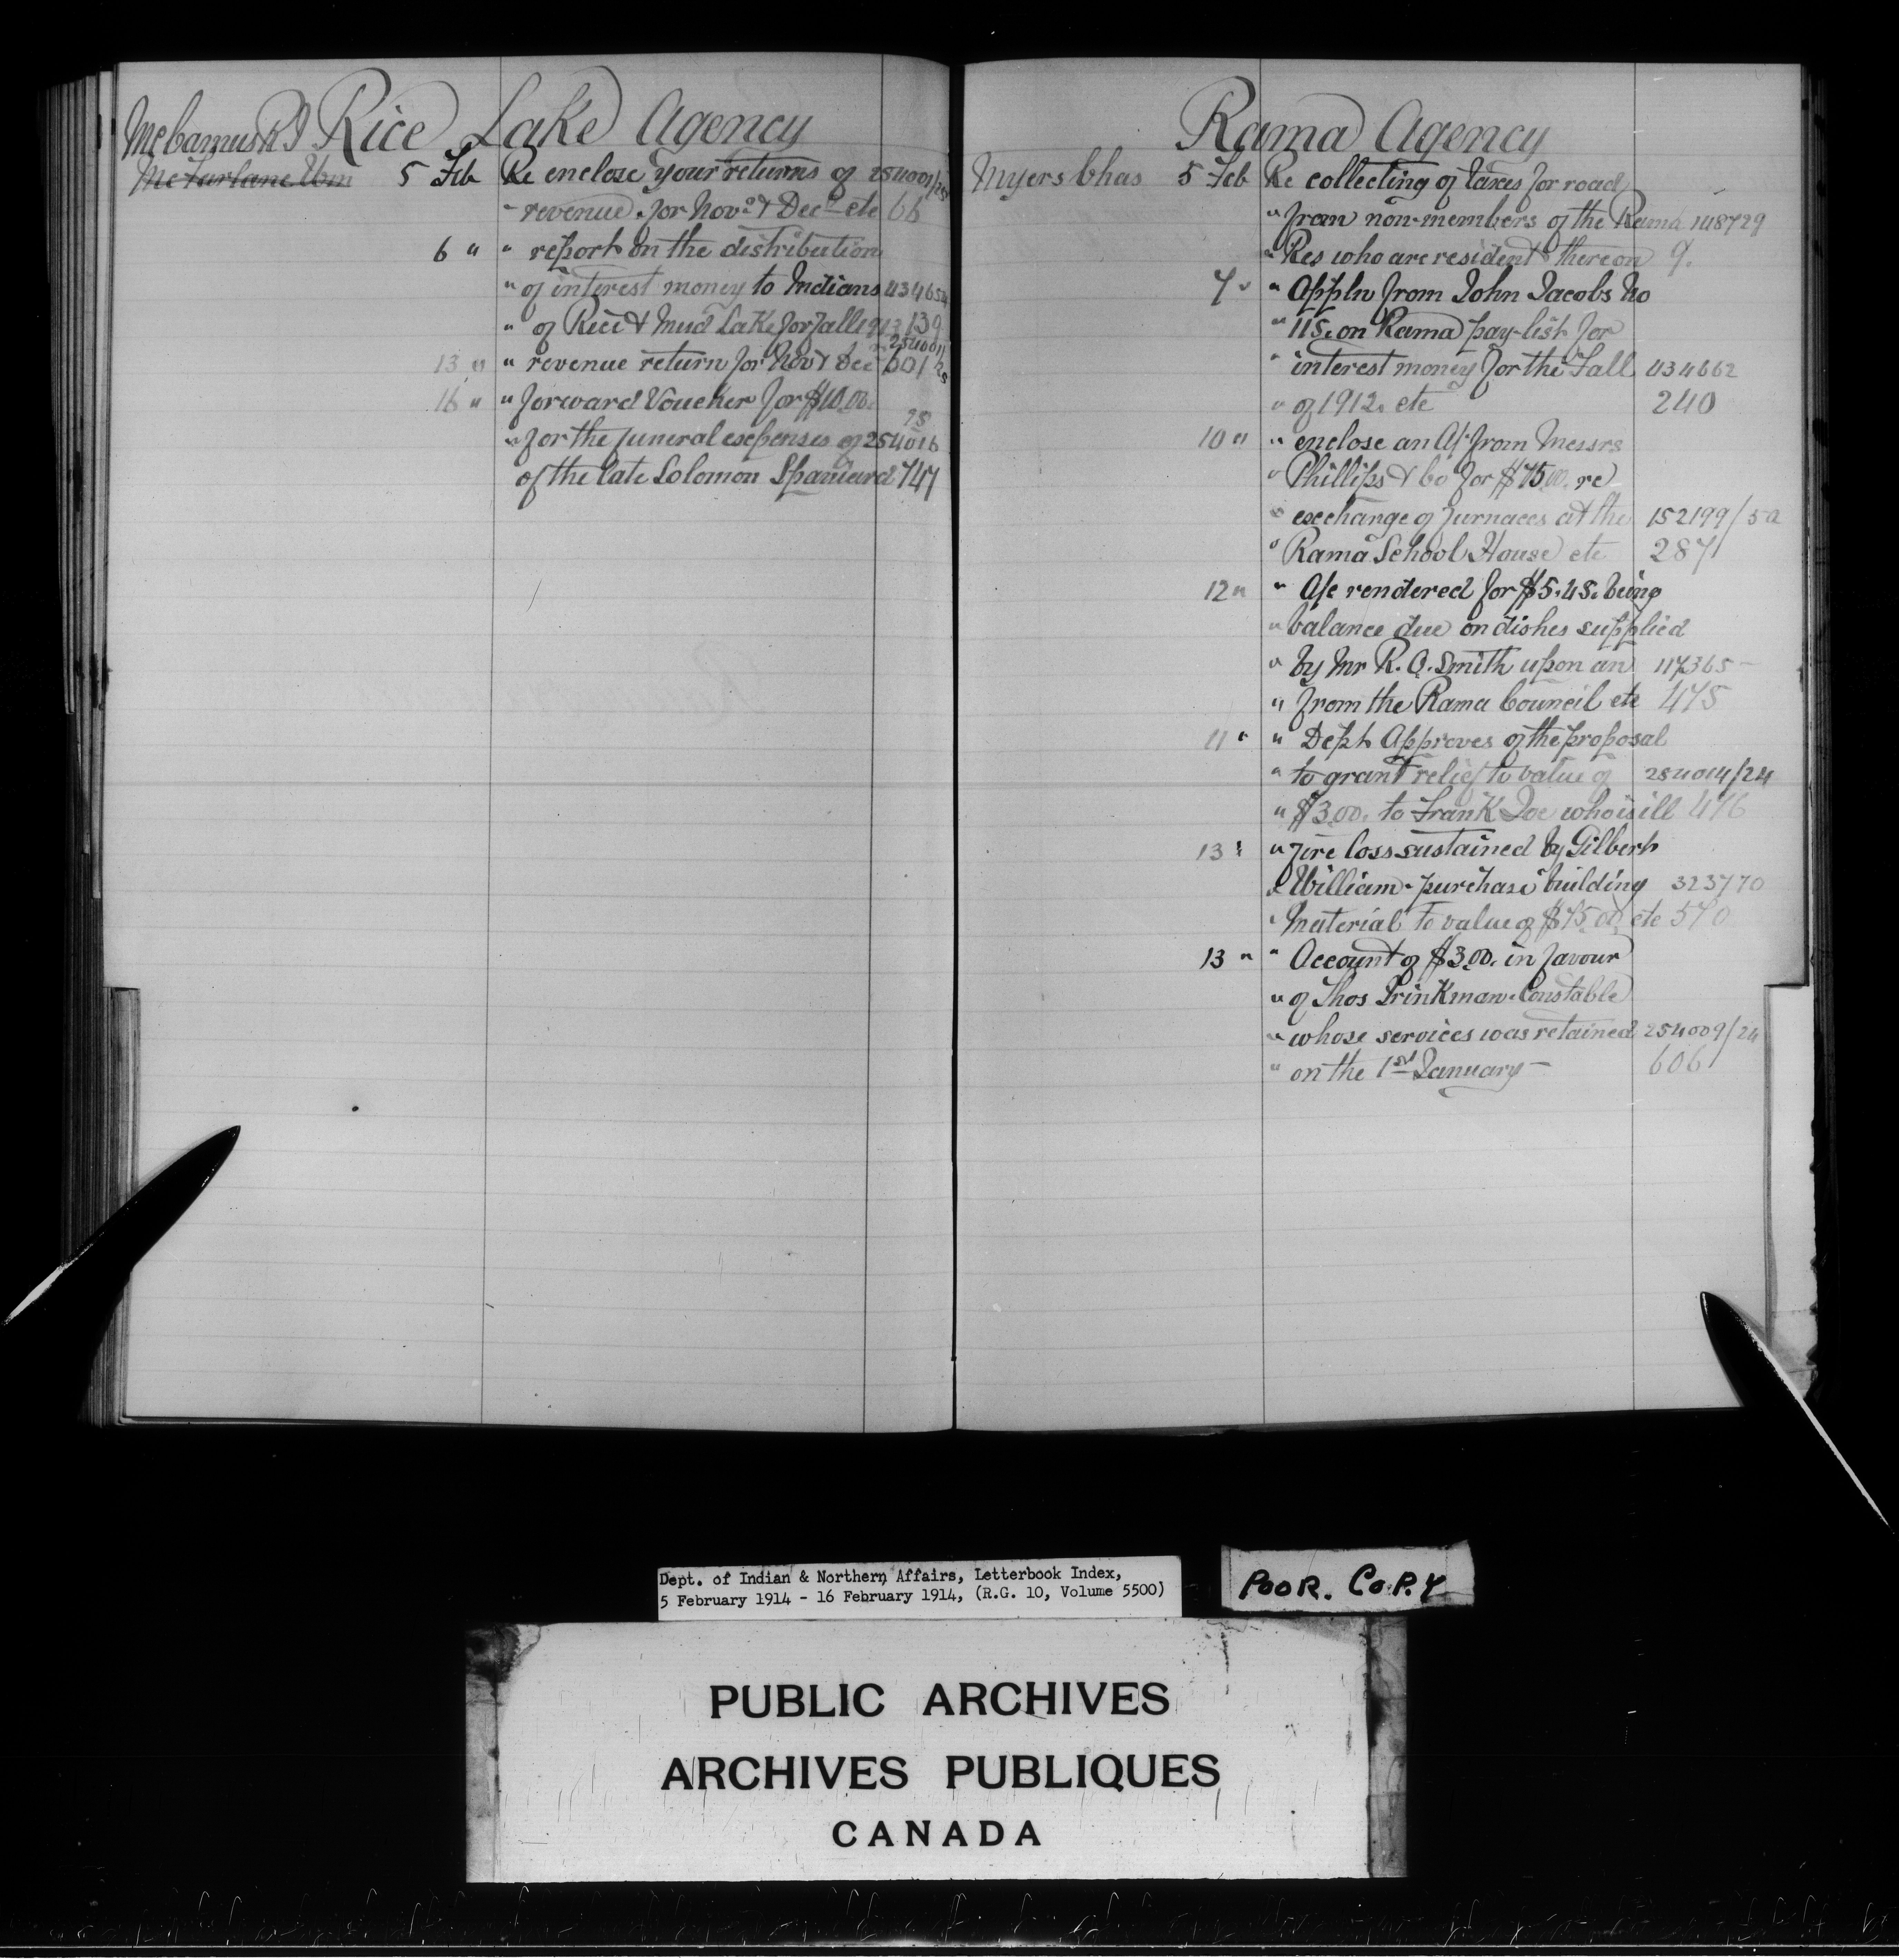 Rice Lake Agency
McCamus R J
McFarlane Wm 5 Feb Re enclose your returns of 254001/25
" revenue for Nov. & Dec. etc 66
6 " " report on the distribution
" of interest money to Indians 434654
" of Rice & Mud Lake for fall 1913 139
13 " " revenue return for Nov & Dec 254001/25 601
16 " " forward Voucher for $10.00.
" for the funeral expenses of 254016/25
of the late Solomon Spaniard 747
Rama Agency
Myers Chas 5 Feb Re collecting of taxes for road
" from non-members of the Rama 148729
" Res who are resident thereon 9.
7 " " Appln from John Jacobs No
" 115. on Rama pay-list for
" interest money for the Fall 434662
" of 1912. etc 240
10 " " enclose an A/c from Messrs
" Phillips & Co for $75.00. re
" exchange of furnaces at the 152199/5a
" Rama School House etc 287
12 " " A/c rendered for $5.45. being
" balance due on dishes supplied
" by Mr R. O. Smith upon an 117365-
" from the Rama Council etc 475
11 " " Dept Approves of the proposal
" to grant relief to value of 254014/24
" $3.00. to Frank Joe who is ill 476
13 " " fire loss sustained by Gilbert
" William - purchase building 323770
" Material to value of $75.00. etc 570
13 " " Account of $3.00. in favour
" of Thos Brinkman - Constable
" whose services was retained 254009/24
" on the 1st January - 606
Dept. of Indian & Northern Affairs, Letterbook Index,
5 February 1914 - 16 February 1914, (R.G. 10, Volume 5500)
POOR. COPY
PUBLIC ARCHIVES
ARCHIVES PUBLIQUES
CANADA